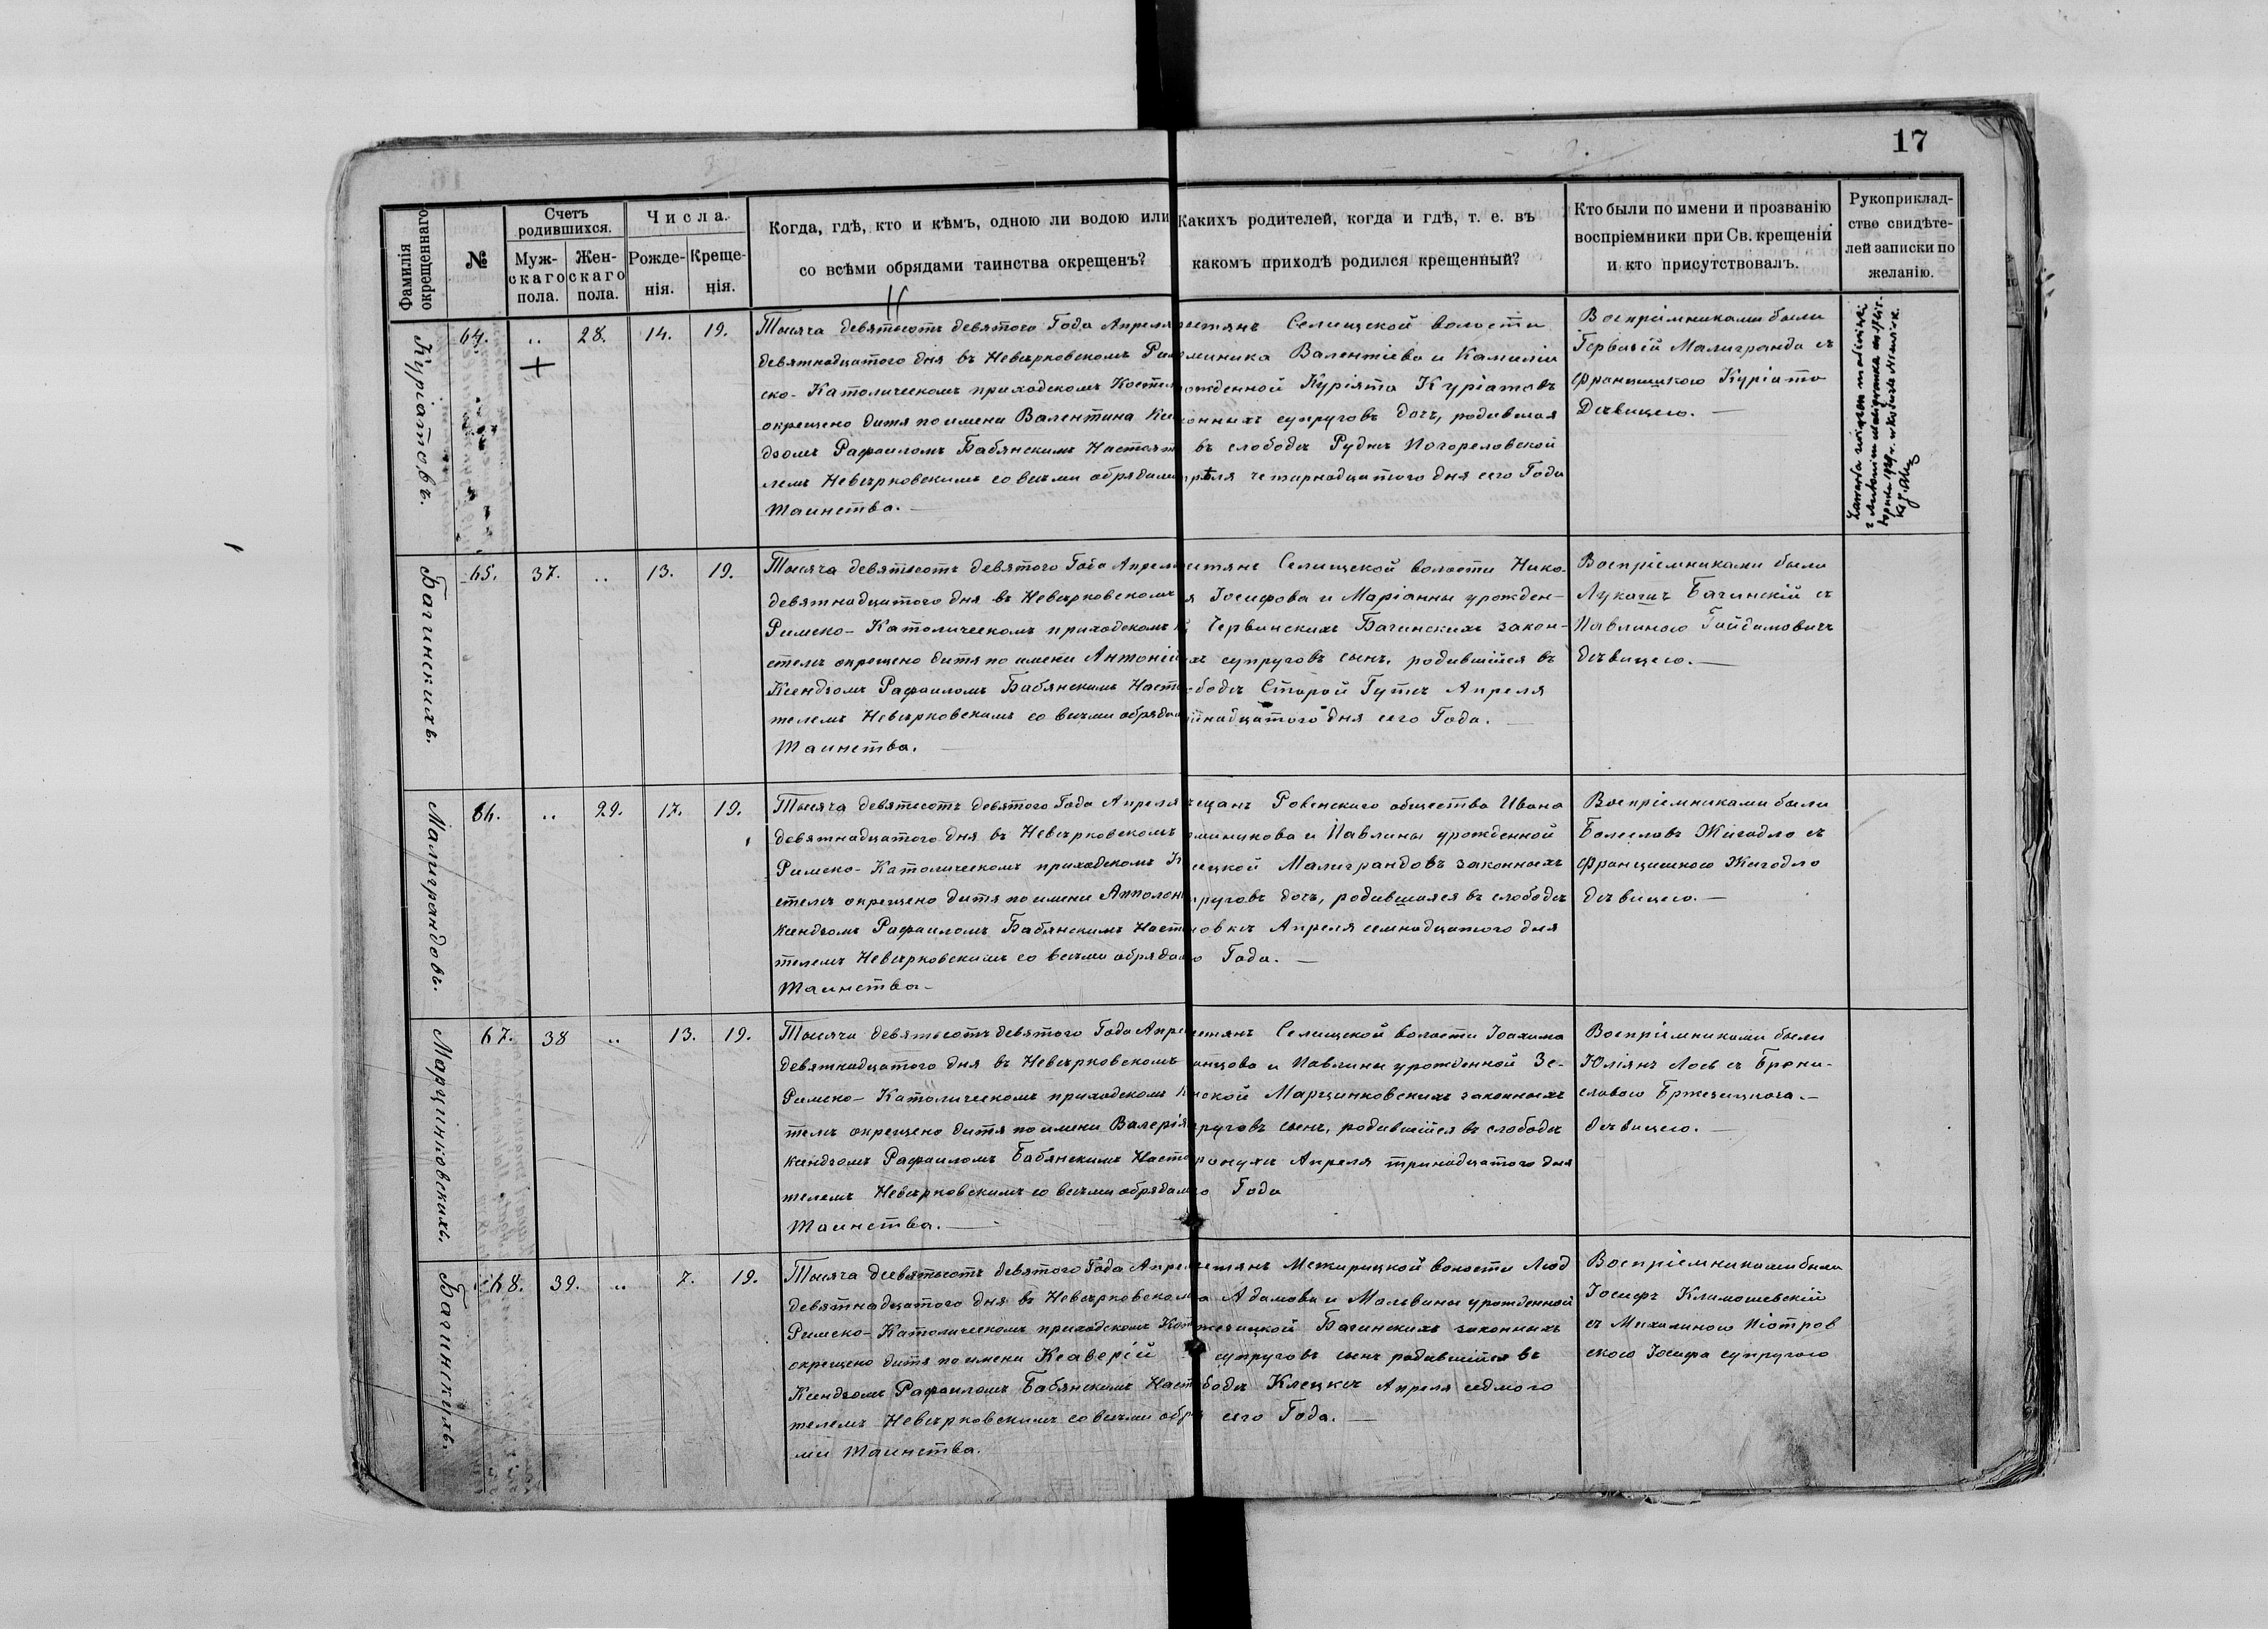 17
Фамилія окрещеннаго
№
Счетъ родившихся.
Муж-
скаго
пола.
Жен-
скаго
пола.
Числа.
Рожде-
нія.
Креще-
нія.
Когда, гдѣ, кто и кѣмъ, одною ли водою или
со всѣми обрядами таинства окрещенъ?
Какихъ родителей, когда и гдѣ, т. е. въ
какомъ приходѣ родился крещенный?
Кто были по имени и прозванію
воспріемники при Св. крещеніи
и кто присутствовалъ.
Рукоприклад-
ство свидѣте-
лей записки по
желанію.
Куріатовъ.
64. .. 28. 14. 19.
Тысяча девятьсотъ девятого Года Апреля
девятнадцатого дня въ Невѣрковскомъ Рим
ско-Католическомъ приходскомъ Костел
окрещено дитя по имени Валентина Кс
дзомъ Рафаиломъ Бабянскимъ Настоят
лемъ Невѣрковскимъ со всѣми обрядами
Таинства.
естянъ Селищской волости
миника Валентіева и Камиліи
рожденной Куріята Куріатовъ
конныхъ супруговъ дочь, родившая
въ слободѣ Руднѣ Погореловской
преля четырнадцатого дня сего Года
Воспріемниками были
Гервасій Малигранда съ
Францишкою Куріато
Дѣвицею.
Багинскихъ.
65. 37. .. 13. 19.
Тысяча девятьсотъ девятого Года Апреля
девятнадцатого дня въ Невѣрковскомъ
Римско-Католическомъ приходскомъ К
стелѣ окрещено дитя по имени Антоній
Ксендзомъ Рафаиломъ Бабянскимъ Насто
телемъ Невѣрковскимъ со всѣми обрядам
Таинства.
естянъ Селищской волости Нико-
я Іосифова и Маріанны урожден-
й Червинскихъ Багинскихъ закон-
хъ супруговъ сынъ, родившійся въ
ободѣ Старой Гутѣ Апреля
инадцатого дня сего Года.
Воспріемниками были
Лукашъ Багинскій съ
Павлиною Гайдамовичъ
дѣвицею.
Малиграндовъ.
66. .. 29. 17. 19.
Тысяча девятьсотъ девятого Года Апреля
девятнадцатого дня въ Невѣрковскомъ
Римско-Католическомъ приходскомъ К
стелѣ окрещено дитя по имени Апполон
Ксендзомъ Рафаиломъ Бабянскимъ Наст
телемъ Невѣрковскимъ со всѣми обрядам
Таинства
щанъ Ровенскаго общества Ивана
миникова и Павлины урожденной
ецкой Малиграндовъ законныхъ
пруговъ дочь, родившаяся въ слободѣ
овкѣ Апреля семнадцатого дня
о Года.
Воспріемниками были
Болеславъ Жигадло съ
Францишкою Жигадло
дѣвицею.
Марцинковскихъ.
67. 38 .. 13. 19.
Тысяча девятьсотъ девятого Года Апре
девятнадцатого дня въ Невѣрковскомъ
Римско-Католическомъ приходскомъ К
телѣ окрещено дитя по имени Валерія
Ксендзомъ Рафаиломъ Бабянскимъ Насто
телемъ Невѣрковскимъ со всѣми обрядам
Таинства.
естянъ Селищской волости Іоахима
анцова и Павлины урожденной Зе-
нской Марцинковскихъ законныхъ
пруговъ сынъ, родившійся въ слободѣ
Апреля тринадцатого дня
го Года
Воспріемниками были
Юліянъ Лось съ Брони-
славою
дѣвицею.
Багинскихъ.
68. 39. .. 7. 19.
Тысяча девятьсотъ девятого Года Апрел
девятнадцатого дня въ Невѣрковском
Римско-Католическомъ приходскомъ Кост
окрещено дитя по имени Ксаверій
Ксендзомъ Рафаиломъ Бабянскимъ Наст
телемъ Невѣрковскимъ со всѣми обря
ми Таинства.
естянъ Межирицкой волости Люд
а Адамова и Мальвины урожденной
жезицкой Багинскихъ законныхъ
супруговъ сынъ родившійся въ
бодѣ Клецкѣ Апреля седмого
сего Года.
Воспріемниками были
Іосифъ Климашевскій
съ Михалиною Піотров
скою Іосифа супругою